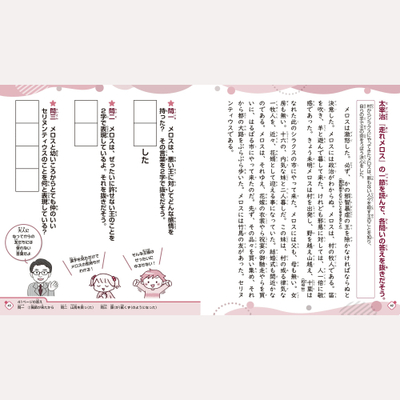 太宰治『走れメロス』の一節を読んで、各問いの答えを抜きだそう。
メロスは激怒した。必ず、かの邪智暴虐の王を除かなければならぬと
決意した。メロスには政治がわからぬ。メロスは、村の牧人である。笛
を吹き、羊と遊んで暮して来た。けれども邪悪に対しては、人一倍に敏
感であった。きょう未明メロスは村を出発し、野を越え山越え、十里は
なれた此のシラクスの市にやって来た。メロスには父も、母も無い。女
房も無い。十六の、内気な妹と二人暮しだ。この妹は、村の或る律気な
一牧人を、近々、花婿として迎える事になっていた。結婚式も間近かな
のである。メロスは、それゆえ、花嫁の衣裳やら祝宴の御馳走やらを買
いに、はるばる市にやって来たのだ。先ず、その品々を買い集め、それ
から都の大路をぶらぶら歩いた。メロスには竹馬の友があった。セリヌ
ンティウスである。
★問一、メロスは、悪い王に対してどんな感情を
持った？ その言葉を2字で抜きだそう。
した
★問二、メロスは、ぜったいに許せない王のことを
2字で表現しているよ。それを抜きだそう。
★問三、メロスと幼いころからとても仲のいい
セリヌンティウスのことを何と表現している？